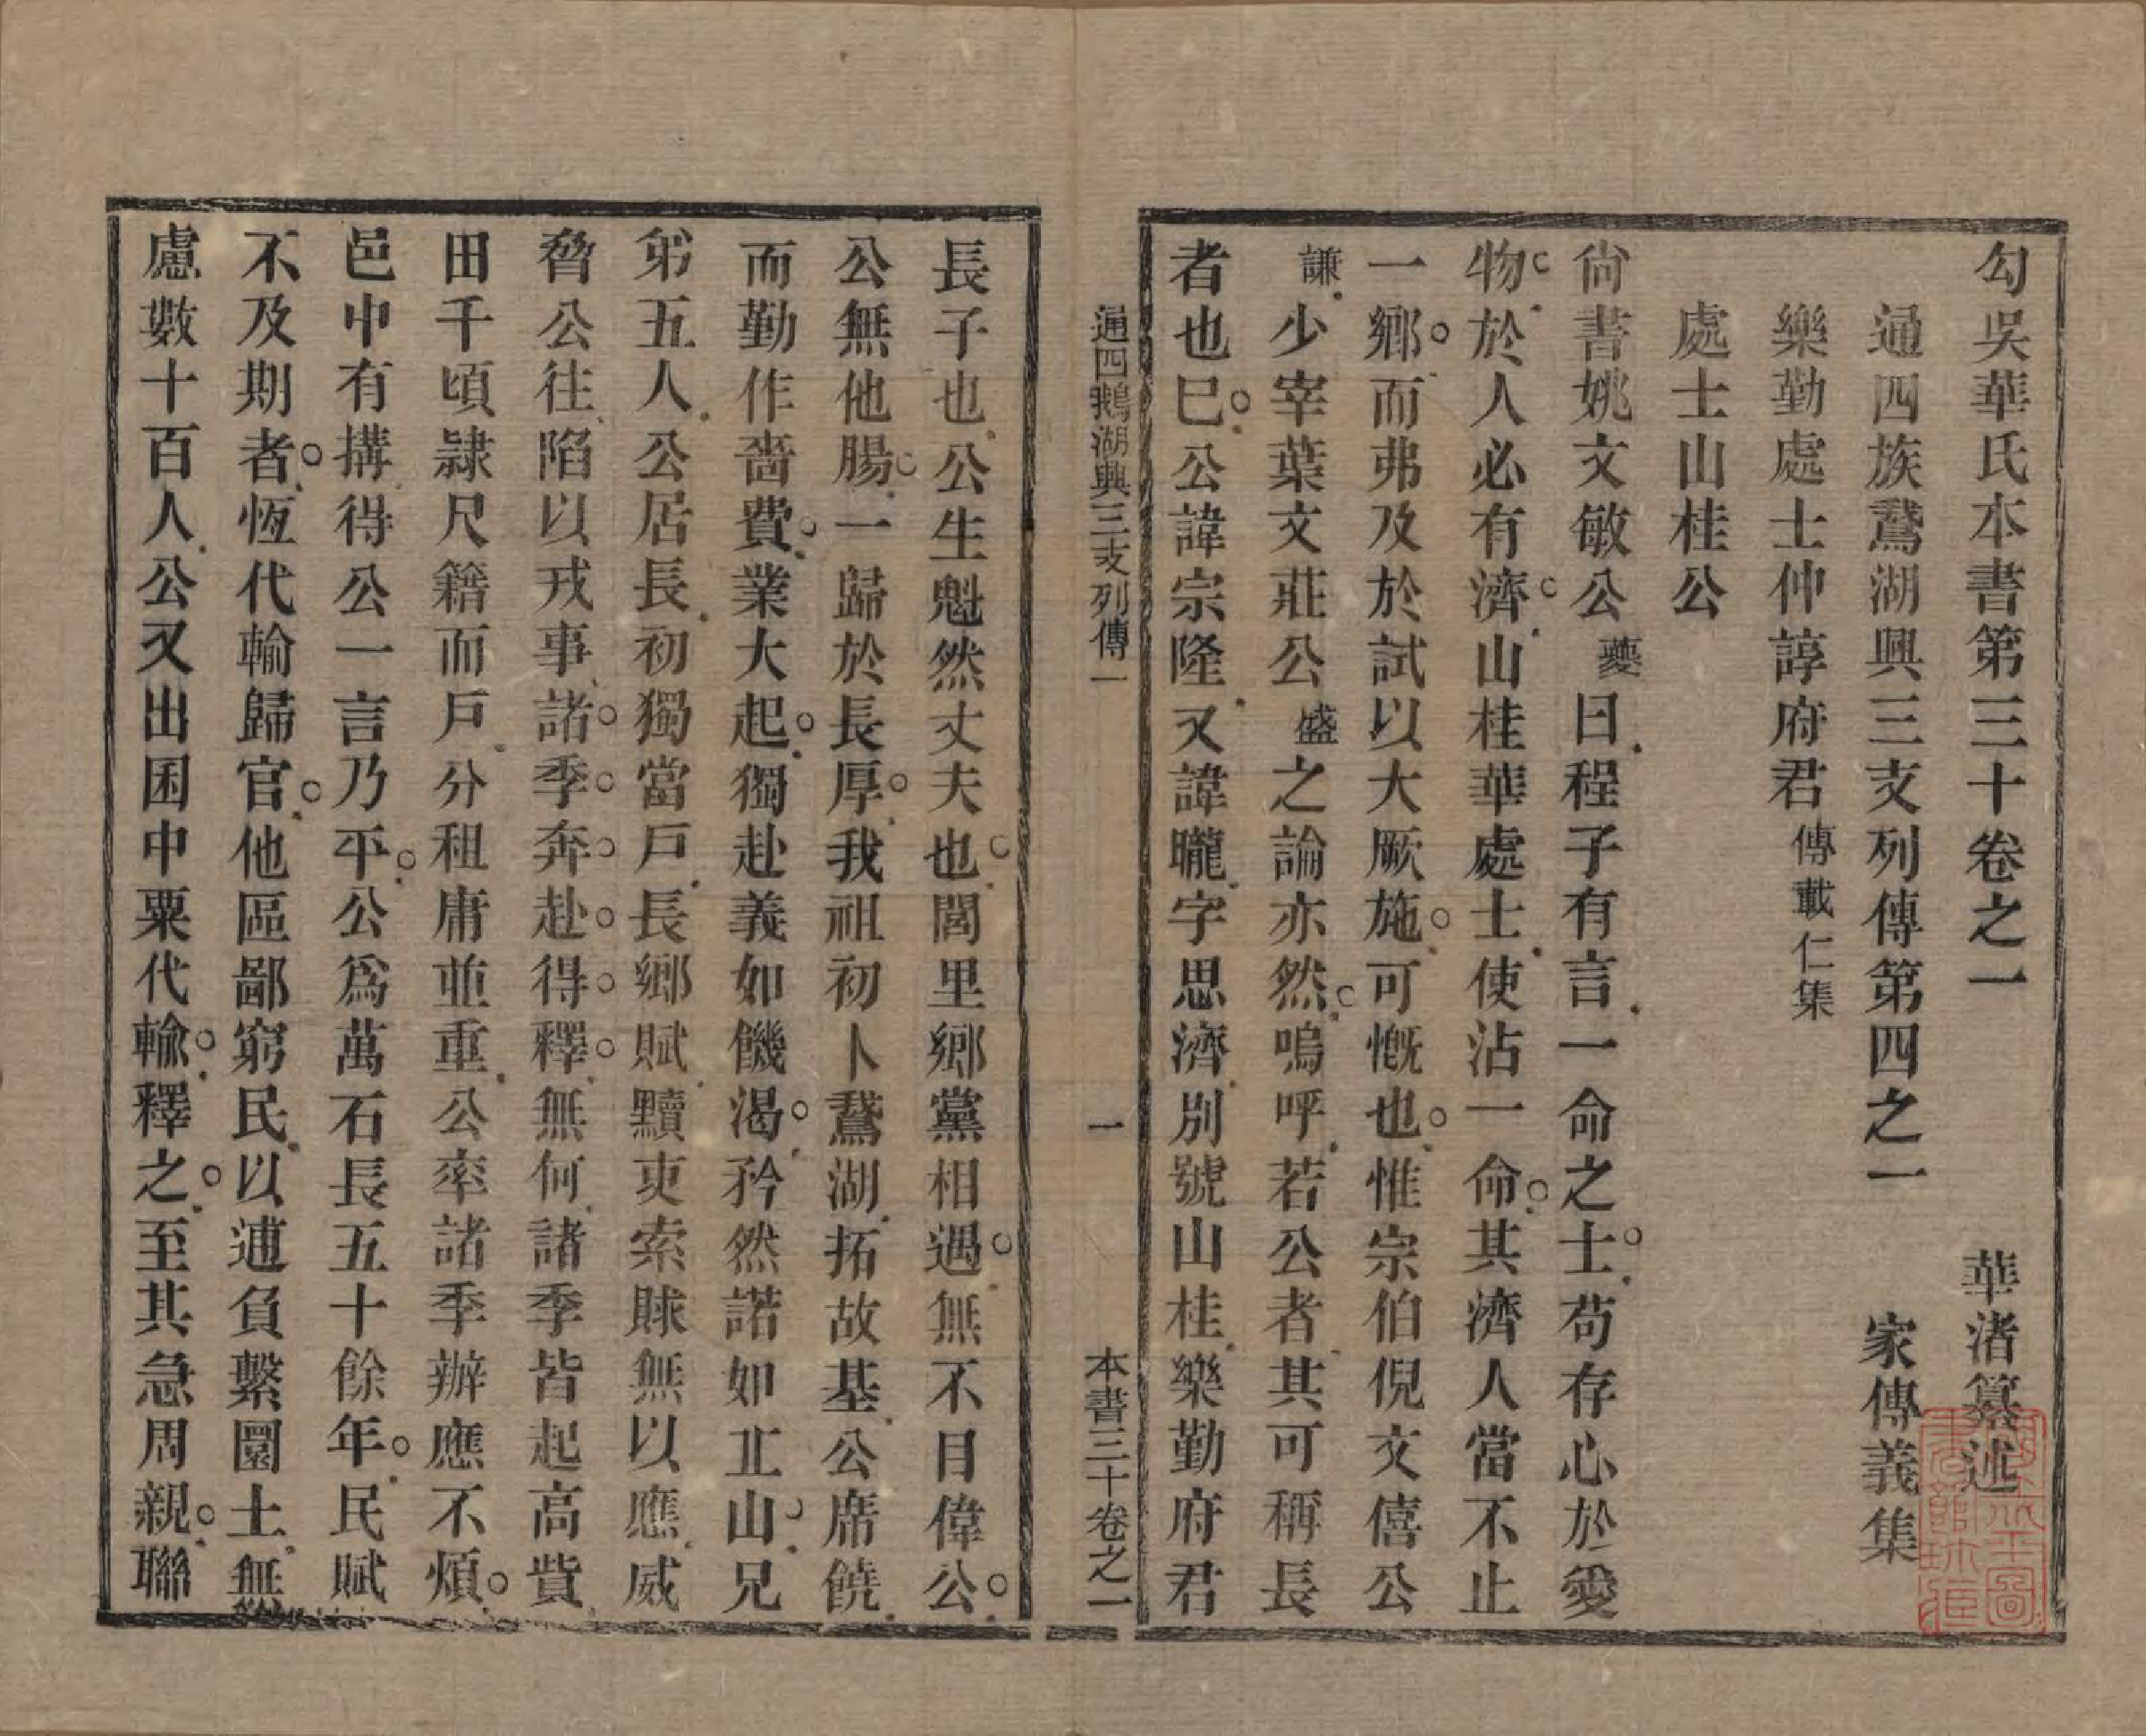 勾吳華氏本書第三十卷之一　華渚纂述
通四族鵞湖興三支列傳第四之一　家傳義集
樂勤處士仲諄府君傳載仁集
處士山桂公
尙書姚文敏公夔曰程子有言一命之士苟存心於愛
物於人必有濟山桂華處士使沾一命其濟人當不止
一鄕而弗及於試以大厥施可慨也惟宗伯倪文僖公
謙少宰葉文莊公盛之論亦然嗚呼若公者其可稱長
者也已公諱宗隆又諱曨字思濟別號山桂樂勤府君
通四鵝湖興三支列傳一　一　本書三十卷之一
長子也公生魁然丈夫也閭里鄕黨相遇無不目偉公
公無他腸一歸於長厚我祖初卜鵞湖拓故基公席饒
而勤作嗇費業大起獨赴義如饑渴矜然諾如丘山兄
弟五人公居長初獨當戶長鄕賦黷吏索賕無以應威
脅公往陷以戎事諸季奔赴得釋無何諸季皆起高貲
田千頃隷尺籍而戶分租庸並重公率諸季辦應不煩
邑中有搆得公一言乃平公爲萬石長五十餘年民賦
不及期者恆代輸歸官他區鄙窮民以逋負繫圜土無
慮數十百人公又出囷中粟代輸釋之至其急周親聯